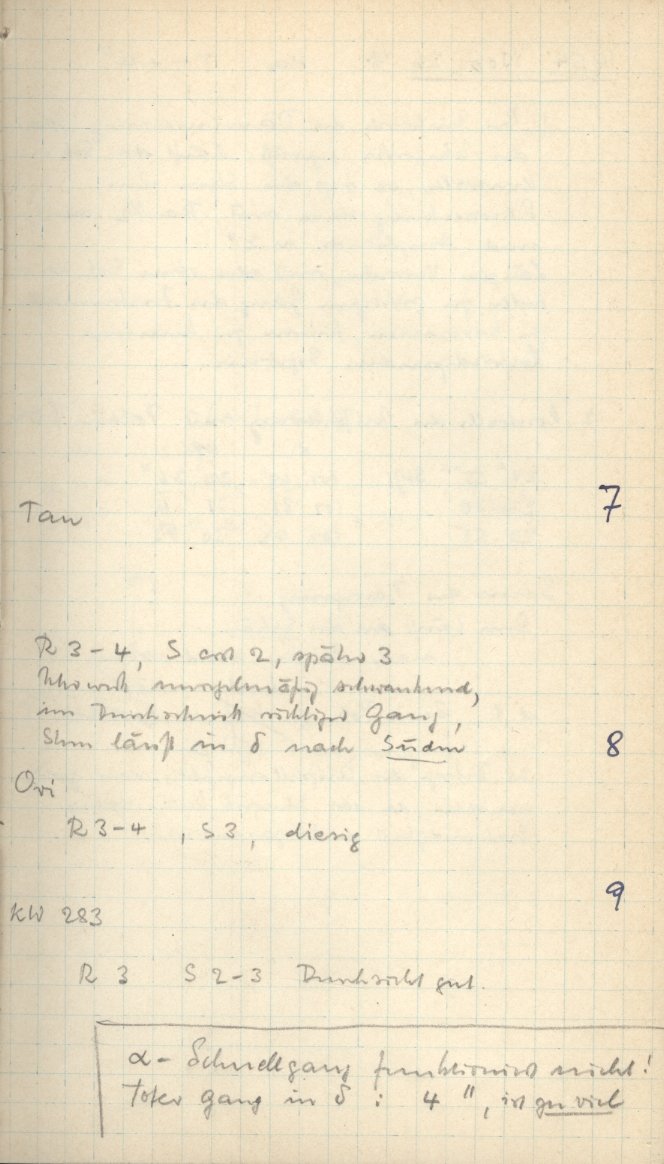 Tau 7
R 3-4, S erst 2, später 3
Uhrwerk unregelmäßig schwankend,
im Durchschnitt richtiger Gang,
Stern läuft in δ nach Süden 8
Ori
R 3-4, S 3, diesig
9
KW 283
R 3 S 2-3 Durchsicht gut.
α- Schnellgang funktioniert nicht!
Toter Gang in δ : 4", ist zu viel